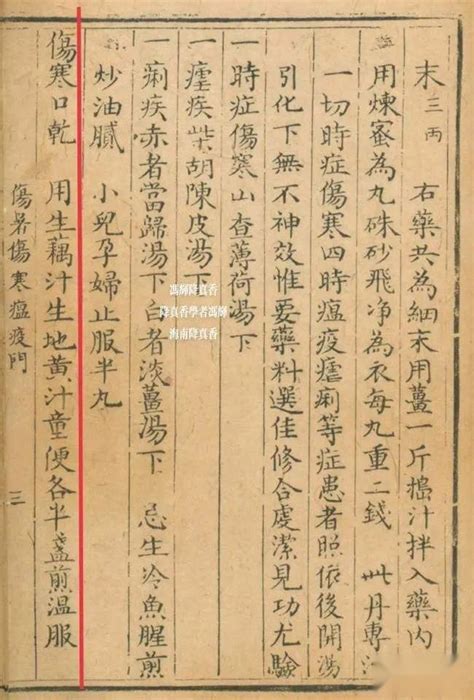 末三丙 右藥共為細末用薑一斤搗汁拌入藥內
用煉蜜為丸硃砂飛净為衣每丸重二錢 此丹專
一切時症傷寒四時瘟疫瘧痢等症患者照依後開湯
引化下無不神效惟要藥料選佳修合虔潔見功尤驗
一時症傷寒山查薄荷湯下
一瘧疾柴胡陳皮湯下
一痢疾赤者當歸湯下白者淡薑湯下 忌生冷魚腥煎
炒油膩 小兒孕婦止服半丸
傷寒口乾 用生藕汁生地黃汁童便各半盞煎溫服
傷暑傷寒瘟疫門 三
馮師降真香
降真香學者馮師
海南降真香